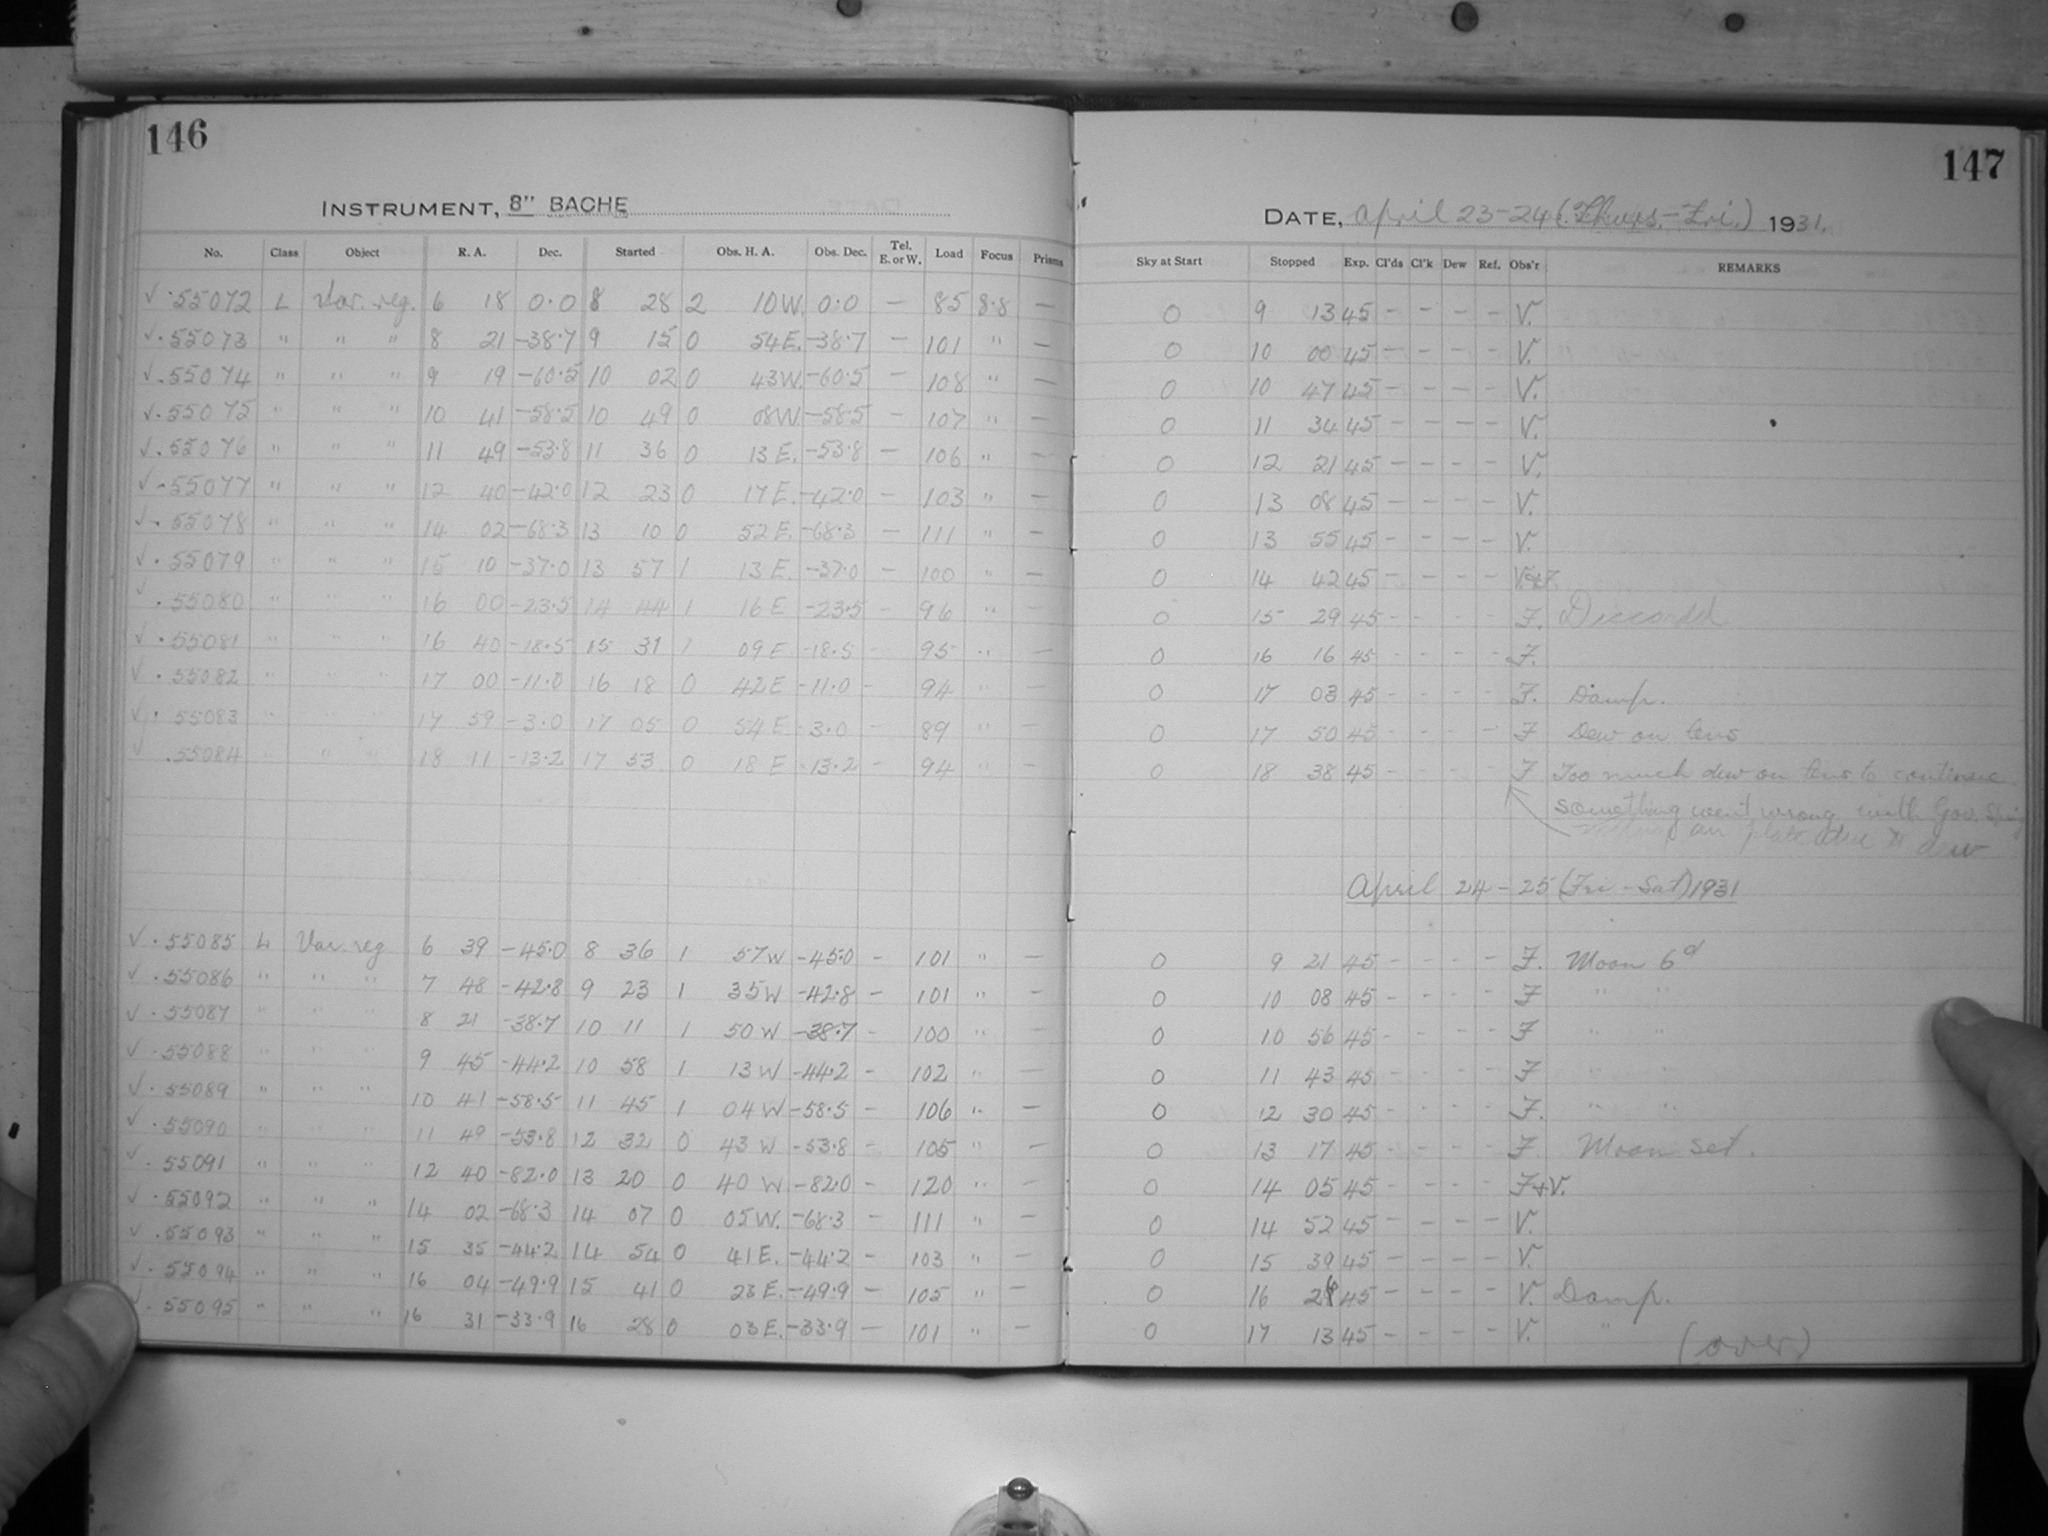 146
INSTRUMENT, 8" BACHE
No. Class Object R. A. Dec. Started Obs. H. A. Obs. Dec. Tel. E. or W. Load Focus Prisms
√ · 55072 L Var. reg. 6 18 0·0 8 28 2 10 W. 0·0 — 85 8·8 —
√ · 55073 " " " 8 21 -38·7 9 15 0 54 E. -38·7 — 101 " —
√ · 55074 " " " 9 19 -60·5 10 02 0 43 W. -60·5 — 108 " —
√ · 55075 " " " 10 41 -58·5 10 49 0 08 W. -58·5 — 107 " —
√ · 55076 " " " 11 49 -53·8 11 36 0 13 E. -53·8 — 106 " —
√ · 55077 " " " 12 40 -42·0 12 23 0 17 E. -42·0 — 103 " —
√ · 55078 " " " 14 02 -68·3 13 10 0 52 E. -68·3 — 111 " —
√ · 55079 " " " 15 10 -37·0 13 57 1 13 E. -37·0 — 100 " —
√ · 55080 " " " 16 00 -23·5 14 44 1 16 E -23·5 - 96 " —
√ · 55081 " " " 16 40 -18·5 15 31 1 09 E -18·5 - 95 " —
√ · 55082 " " " 17 00 -11·0 16 18 0 42 E -11·0 - 94 " —
√ · 55083 " " " 17 59 -3·0 17 05 0 54 E -3·0 - 89 " —
√ · 55084 " " " 18 11 -13·2 17 53 0 18 E -13·2 - 94 " —
√ · 55085 L Var. reg 6 39 -45·0 8 36 1 57 W -45·0 - 101 " —
√ · 55086 " " " 7 48 -42·8 9 23 1 35 W -42·8 - 101 " —
√ · 55087 " " " 8 21 -38·7 10 11 1 50 W -38·7 - 100 " —
√ · 55088 " " " 9 45 -44·2 10 58 1 13 W -44·2 - 102 " —
√ · 55089 " " " 10 41 -58·5 11 45 1 04 W -58·5 - 106 " —
√ · 55090 " " " 11 49 -53·8 12 32 0 43 W -53·8 - 105 " —
√ · 55091 " " " 12 40 -82·0 13 20 0 40 W -82·0 - 120 " —
√ · 55092 " " " 14 02 -68·3 14 07 0 05 W. -68·3 — 111 " —
√ · 55093 " " " 15 35 -44·2 14 54 0 41 E. -44·2 — 103 " —
√ · 55094 " " " 16 04 -49·9 15 41 0 23 E. -49·9 — 105 " —
√ · 55095 " " " 16 31 -33·9 16 28 0 03 E. -33·9 — 101 " —
147
DATE, April 23-24 (Thurs.-Fri.) 1931.
Sky at Start Stopped Exp. Cl'ds Cl'k Dew Ref. Obs'r REMARKS
0 9 13 45 - - - - V.
0 10 00 45 - - - - V.
0 10 47 45 - - - - V.
0 11 34 45 - - - - V.
0 12 21 45 - - - - V.
0 13 08 45 - - - - V.
0 13 55 45 - - - - V.
0 14 42 45 - - - - V.+F.
0 15 29 45 - - - - F.
0 16 16 45 - - - - F.
0 17 03 45 - - - - F. Damp.
0 17 50 45 - - - - F Dew on lens
0 18 38 45 - - - - F Too much dew on lens to continue
something went wrong with Gov. Spring
April 24 - 25 (Fri - Sat) 1931
0 9 21 45 - - - - F. Moon 6d
0 10 08 45 - - - - F " "
0 10 56 45 - - - - F " "
0 11 43 45 - - - - F " "
0 12 30 45 - - - - F. " "
0 13 17 45 - - - - F. Moon set.
0 14 05 45 - - - - F+V.
0 14 52 45 - - - - V.
0 15 39 45 - - - - V.
0 16 26 45 - - - - V. Damp.
0 17 13 45 - - - - V. "
(over)